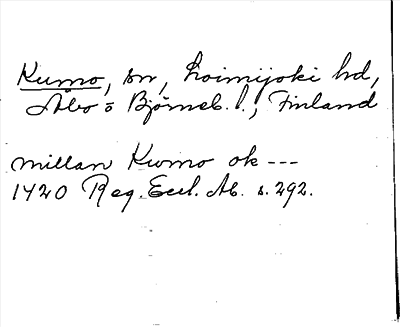 Kumo, sn, Loimijoki hd,
Åbo o Björneb. l., Finland
millan Kumo ok ---
1420 Reg. Eccl. Ab. s. 292.